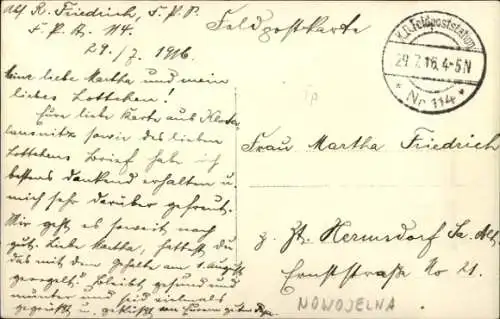 Abs. R. Friedrich, F. P. S.
F. P. A. 114.
29./7. 1916.
Feldpostkarte
K.D. Feldpoststation
29.7.16.4-5N
* Nr. 114 *
Meine liebe Martha und mein
liebes Lottchen!
Eure liebe Karte aus Kloster
lausnitz sowie des lieben
Lottchens Brief habe ich
bestens dankend erhalten u.
mich sehr darüber gefreut.
Mir geht es soweit noch
gut. Liebe Martha, hattest du
das mit dem Gehalte am 1. August
geregelt? Bleibt gesund und
munter und seid vielmals
gegrüßt u. geküßt von Eurem guten Papa.
Frau Martha Friedrich
z. Zt. Hermsdorf Sa. Alt.
Ernststraße No 21.
NOWOJELNA